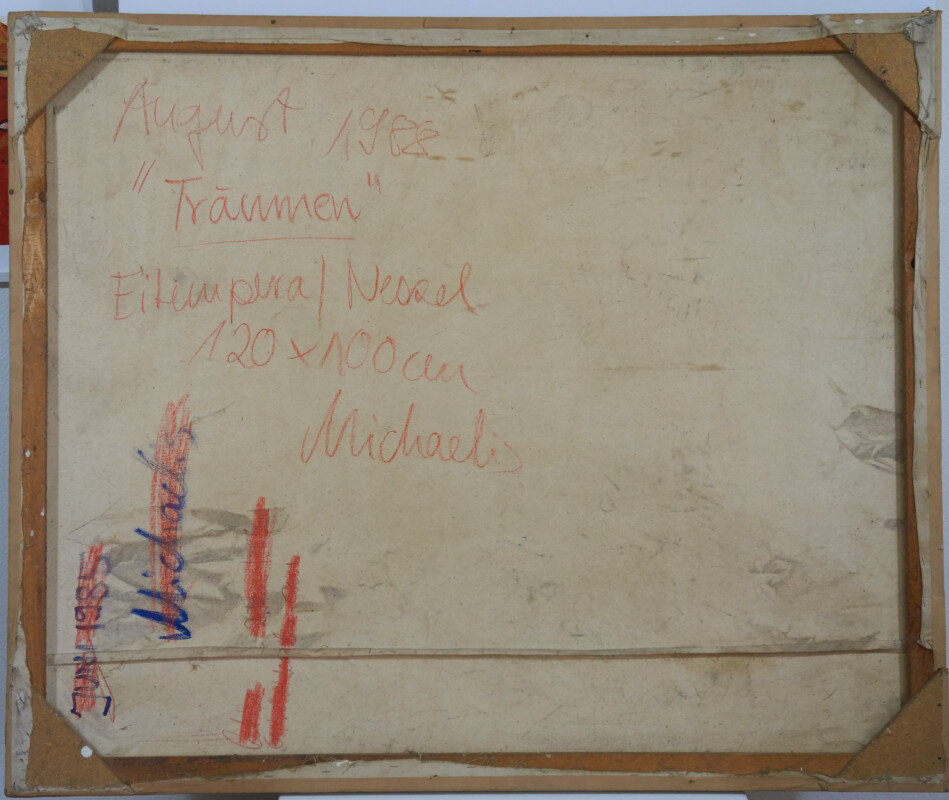 August 1988
"Träumen"
Eitempera / Nessel
120 x 100 cm
Michaelis
Michaelis
JUNI 1985